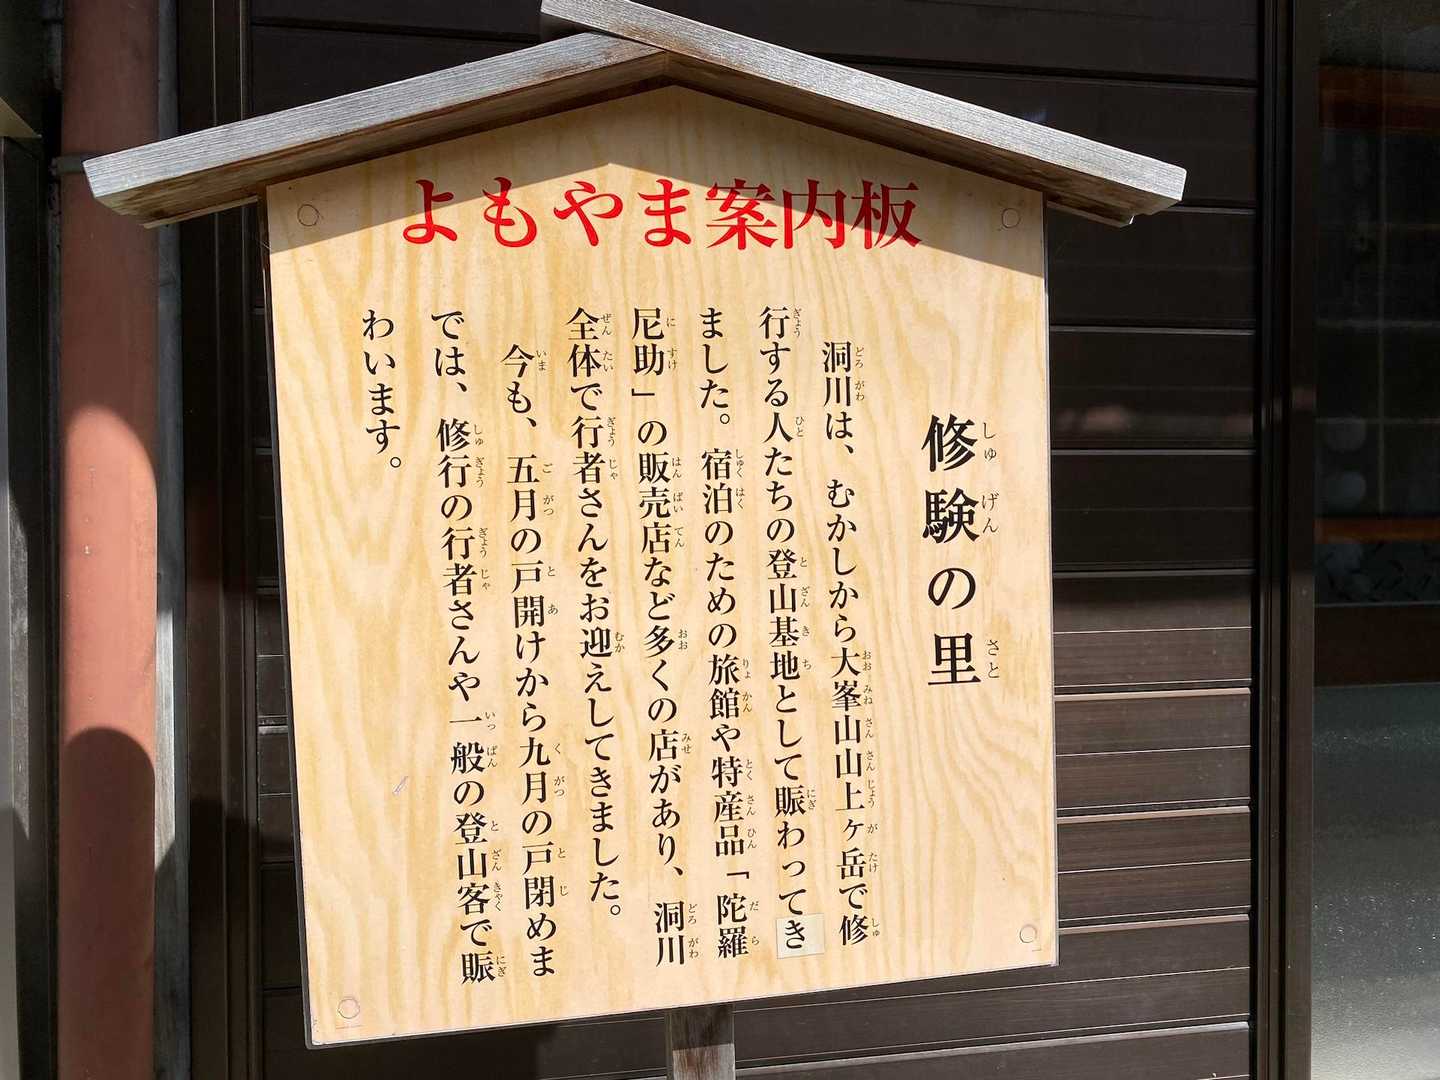 よもやま案内板
修験の里
洞川は、むかしから大峯山山上ヶ岳で修
行する人たちの登山基地として賑わってき
ました。宿泊のための旅館や特産品「陀羅
尼助」の販売店など多くの店があり、洞川
全体で行者さんをお迎えしてきました。
今も、五月の戸開けから九月の戸閉めま
では、修行の行者さんや一般の登山客で賑
わいます。